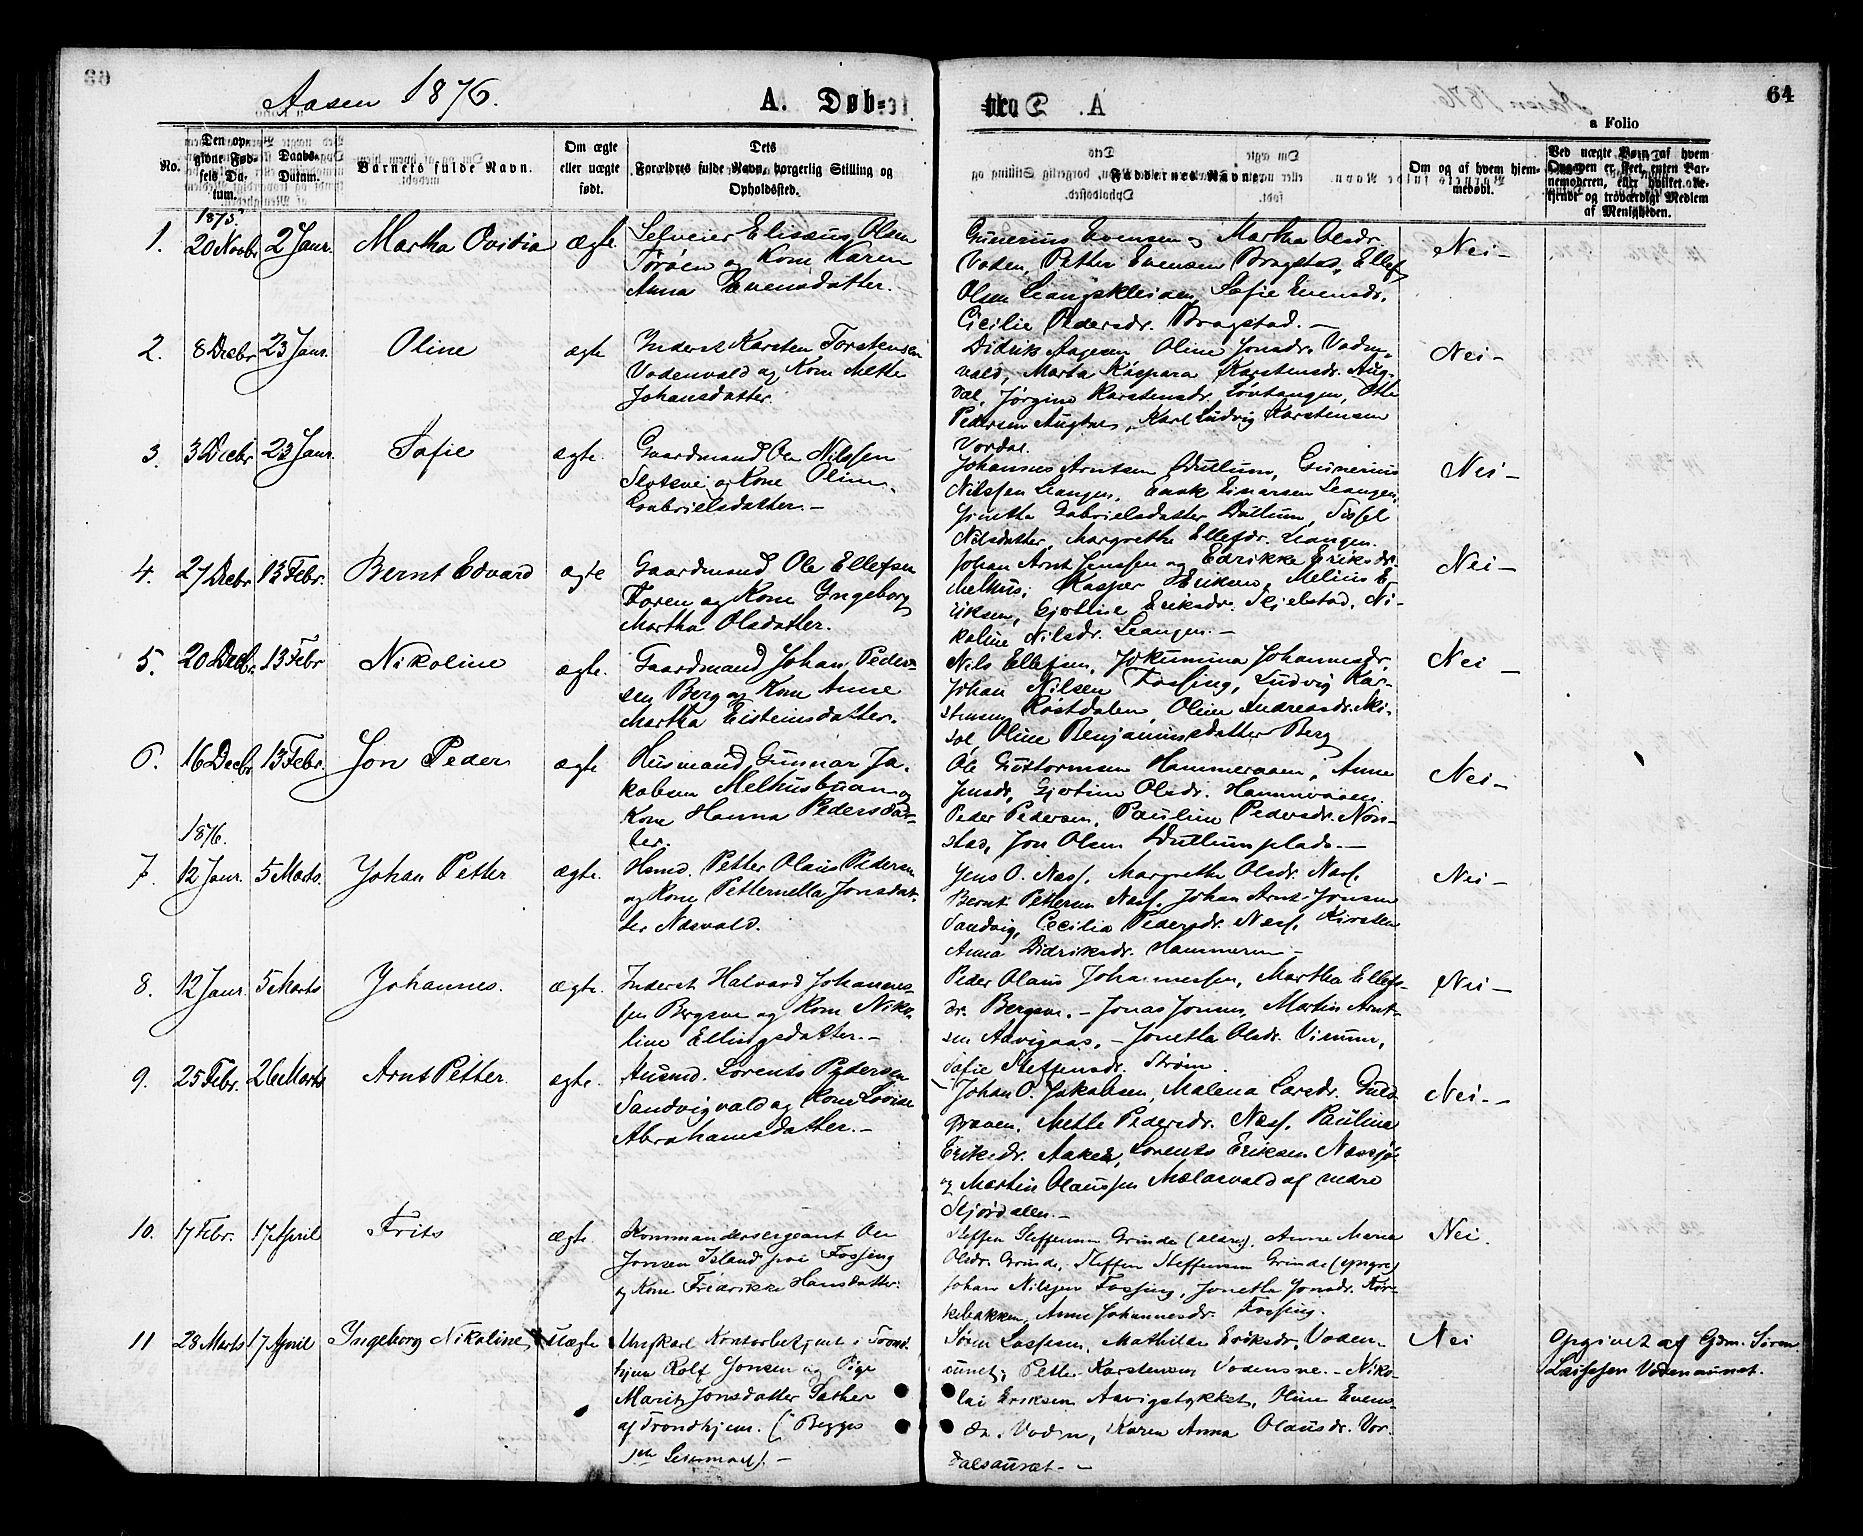 Aasen 1876.
A. Døb-
64
a Folio
No.
Den op-
givne Fød-
sels Da-
tum.
Daabs-
Datum.
Barnets fulde Navn.
Om ægte
eller uægte
født.
Dets
Forældres fulde Navn, borgerlig Stilling og
Opholdssted.
Faddernes Navne.
Om og af hvem hjem-
medøbt.
Ved uægte Børn af hvem
Opgaven er skeet, enten Bar-
nemoderen, eller hvilket be-
kjendt og troværdigt Medlem
af Menigheden.
1875
1. 20 Novbr 2 Janr. Martha Ovidia ægte
Selveier Elisæus Olsen
Töröen og Kone Karen
Anna Evensdatter.
Gunerius Evensen og Martha Olsdr.
Voden, Petter Evensen Bragstad, Ellef
Olsen Leangskleiven, Sofie Evensdr.
Cicilie Pedersdr. Bragstad. —
Nei —
2. 8 Decbr 23 Janr. Oline ægte
Inderst Karsten Torstensen
Vodenvald og Kone Mette
Johansdatter.
Didrik Aagesen, Oline Jonsdr. Voden-
vald, Marta Kaspara Karstensdr. Aug-
dal, Jørgine Karstensdr. Løvtangen, Otte
Pedersen Augdal, Karl Ludvig Karstensen
Vordal.
Nei —
3. 3 Decbr 23 Janr. Sofie ægte.
Gaardmand Ole Nilssen
Slotsvei og Kone Oline
Gabrielsdatter. —
Johannes Arntsen Dullum, Gunerius
Nilssen Leangen, Enok Einarsen Leangen,
Jonetha Gabrielsdatter Dullum, Sissel
Nilsdatter, Margrethe Ellefdr. Leangen.
Nei —
4. 27 Decbr 13 Febr. Bernt Edvard ægte
Gaardmand Ole Ellefsen
Foren og Kone Ingeborg
Martha Olsdatter.
Johan Arnt Jenssen og Edrikke Eriksdr.
Melhus, Kasper Eriksen, Melius E-
riksen, Gjertine Eriksdr. Skjelstad, Ni-
koline Nilsdr. Leangen. —
Nei —
5. 20 Decbr. 13 Febr Nikoline ægte.
Gaardmand Johan Peder-
sen Berg og Kone Anne
Martha Eisteinsdatter.
Nils Ellefsen, Jokumina Johannesdr.
Johan Nilsen Fossing, Ludvig Kar-
stensen Røstdalen, Oline Andreasdr. Mis-
sol, Oline Benjaminsdatter Berg
Nei —
6. 16 Decbr 13 Febr. Jon Peder ægte
Husmand Gunnar Ja-
kobsen Melhusbuan og
Kone Hanna Pedersdat-
ter.
Ole Guttormsen Hammeraaen, Anne
Jensdr, Gjertine Olsdr. Hammeraaen.
Peder Pedersen, Pauline Pedersdr. Non-
stad, Jon Olsen Dullumsplads. —
Nei —
1876.
7. 12 Janr. 5 Marts. Johan Petter ægte.
Hsmd. Petter Olaus Pedersen
og Kone Petternella Jonsdat-
ter Næsvald.
Jens O. Næss. Margrethe Olsdr. Næss.
Bernt Pettersen Næss. Johan Arnt Jonsen
Sandvig, Cecilia Pedersdr. Næss. Kirsten
Anna Didriksdr. Hammeren —
Nei —
8. 12 Janr. 5 Marts Johannes. ægte.
Inderst Halvard Johannes-
sen Bergsve og Kone Niko-
line Ellingsdatter. —
Peder Olaus Johannessen, Martha Ellefs-
dr. Bergsve. — Jonas Jonsen, Martin Arnt-
sen Aavigaas. — Jonetha Olsdr. Vinum,
Sofie Steffensdr. Strøm.
Nei —
9. 25 Febr. 26 Marts Arnt Petter. ægte.
Husmd. Lorents Pedersen
Sandvigvald og Kone Lovise
Abrahamsdatter. —
Johan O. Jakobsen, Malena Larsdr. Guld-
graven, Mette Pedersdr. Næss, Paulina
Eriksdr. Aaker, Lorents Eriksen Næssjø
og Martin Olaussen Mælasvald af nedre
Stjørdalen. —
Nei. —
10. 17 Febr. 17 April Frits ægte.
Kommandersergeant Ole
Jonsen Island paa Fossing
og Kone Fredrikke Hansdatter.
Steffen Steffensen Grinde (ældre), Anne Maria
Olsdr. Grinde, Steffen Steffensen Grinde (yngre)
Johan Nilssen Fossing, Jonetha Jonsdr. Kir-
kebakken, Anne Johannesdr. Fossing.
Nei.
11 28 Marts 17 April Ingeborg Nikoline uægte
Ungkarl Kontorbetjent i Trond-
hjem Rolf Jonsen og Pige
Marit Jonsdatter Sæther
af Trondhjem. (Begges
1ste Leiermaal). —
Søren Lassesen, Mathilde Eriksdr. Voden-
aunet, Petter Karstensen Vodensve. — Niko-
lai Eriksen Aavigstykket, Oline Evens-
dr. Voden, Karen Anna Olausdr. Vor-
dalsaunet. —
Nei
Opgivet af Gdm. Søren
Lassesen Vodenaunet.